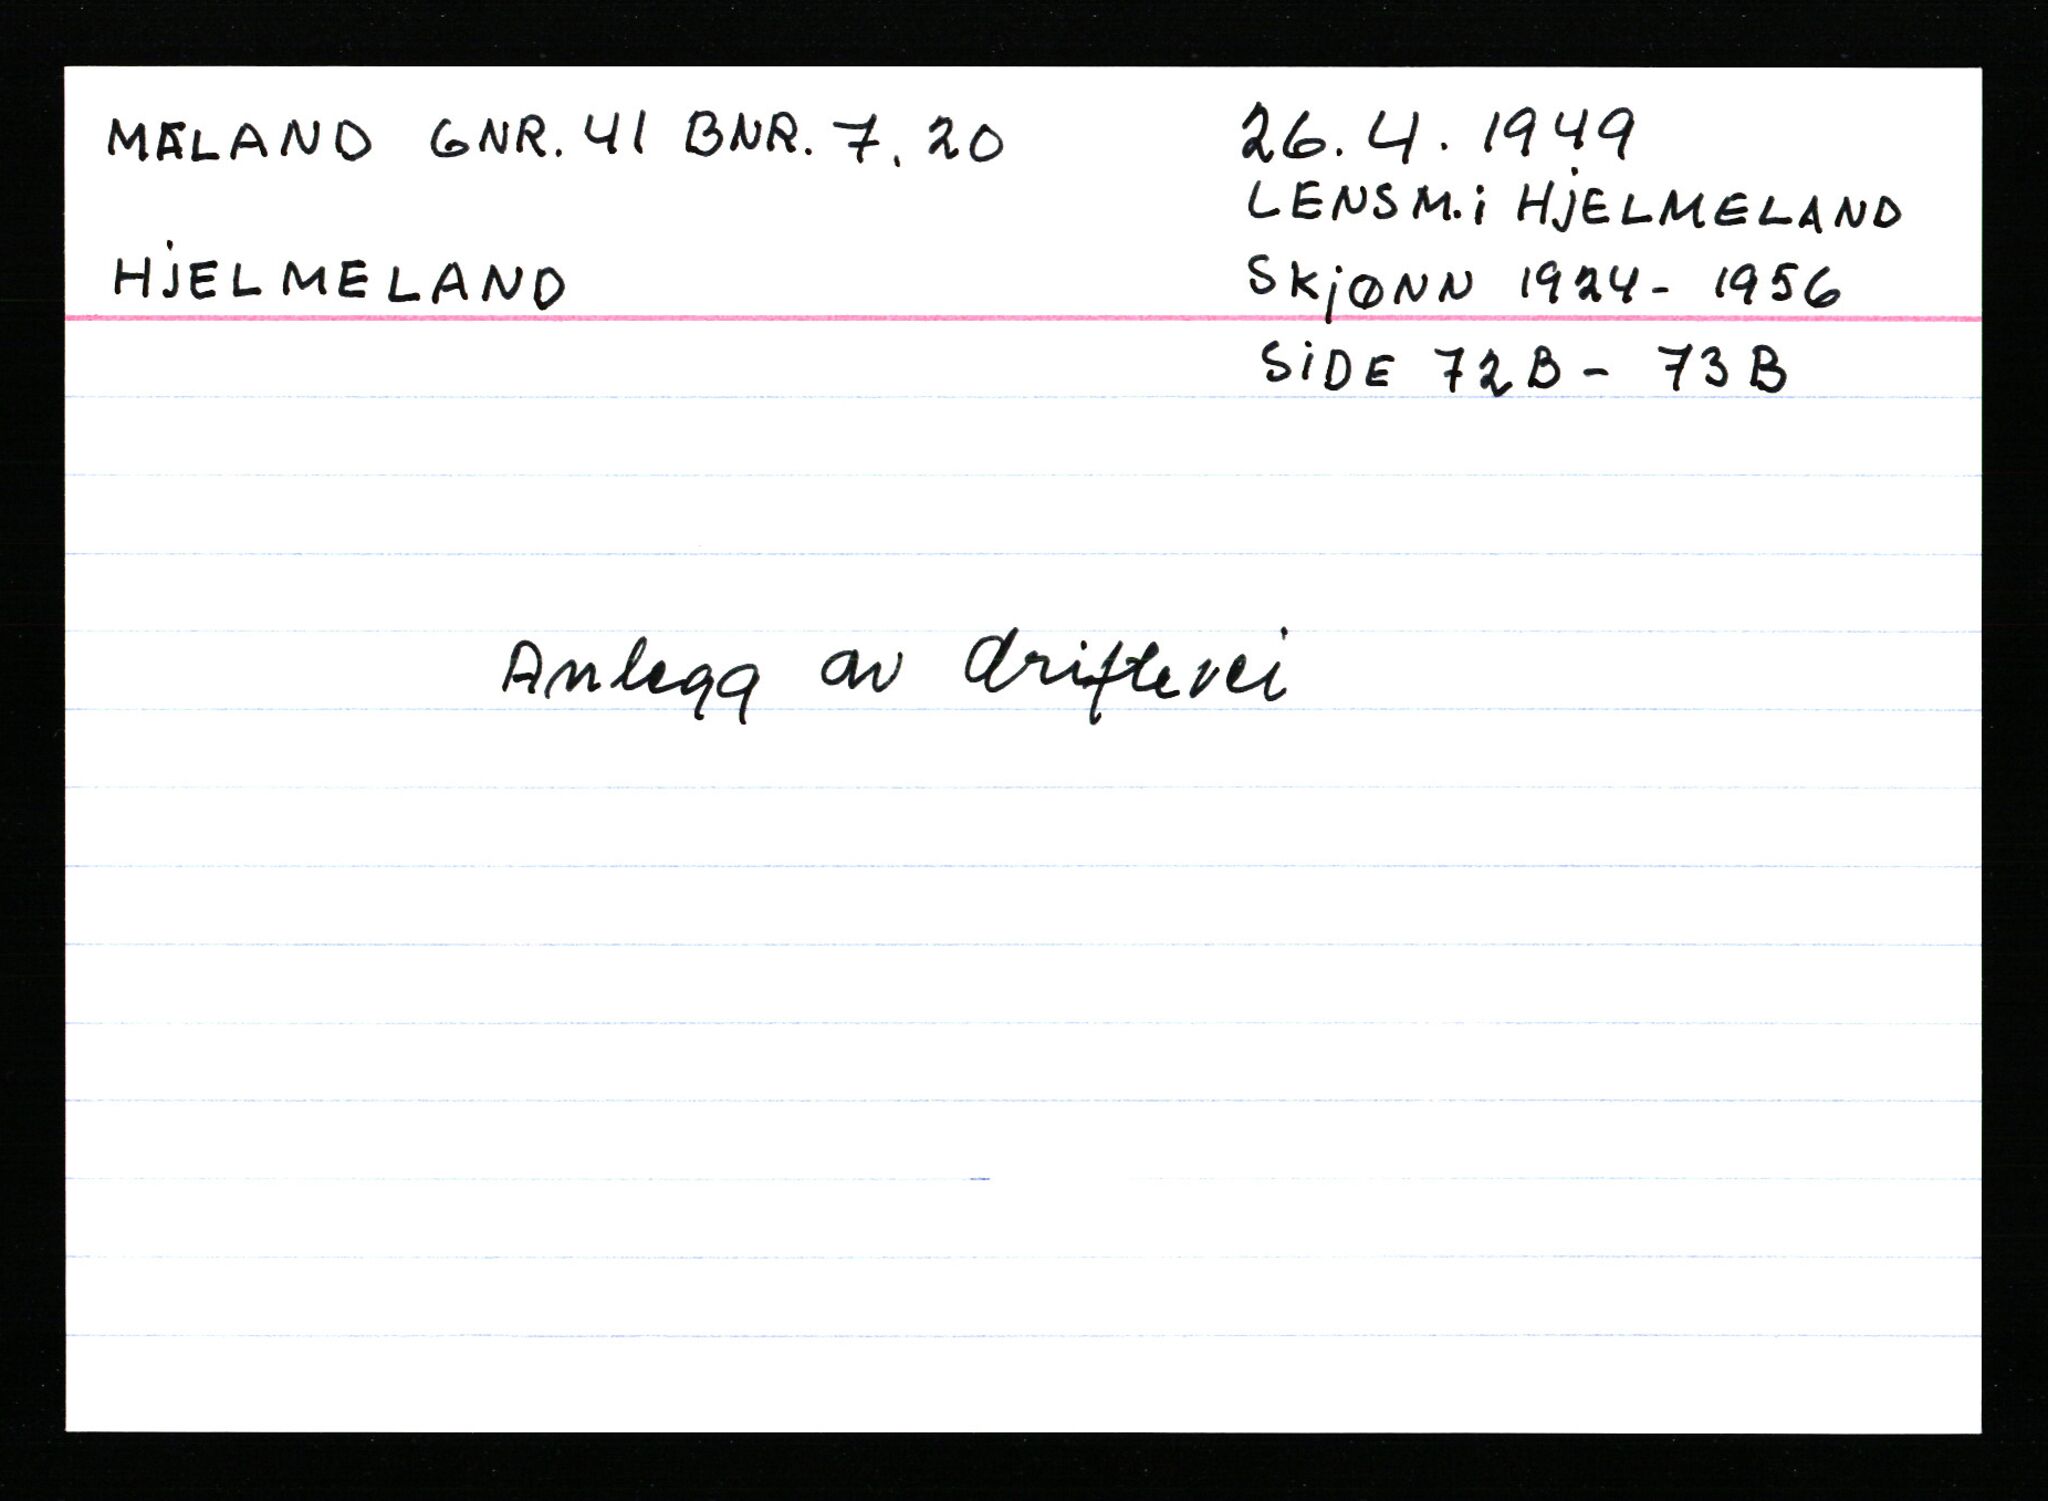 MÆLAND GNR. 41 BNR. 7, 20
HJELMELAND
26.4.1949
LENSM. i HJELMELAND
SKJØNN 1924 - 1956
SIDE 72B - 73B
Anlegg av driftevei